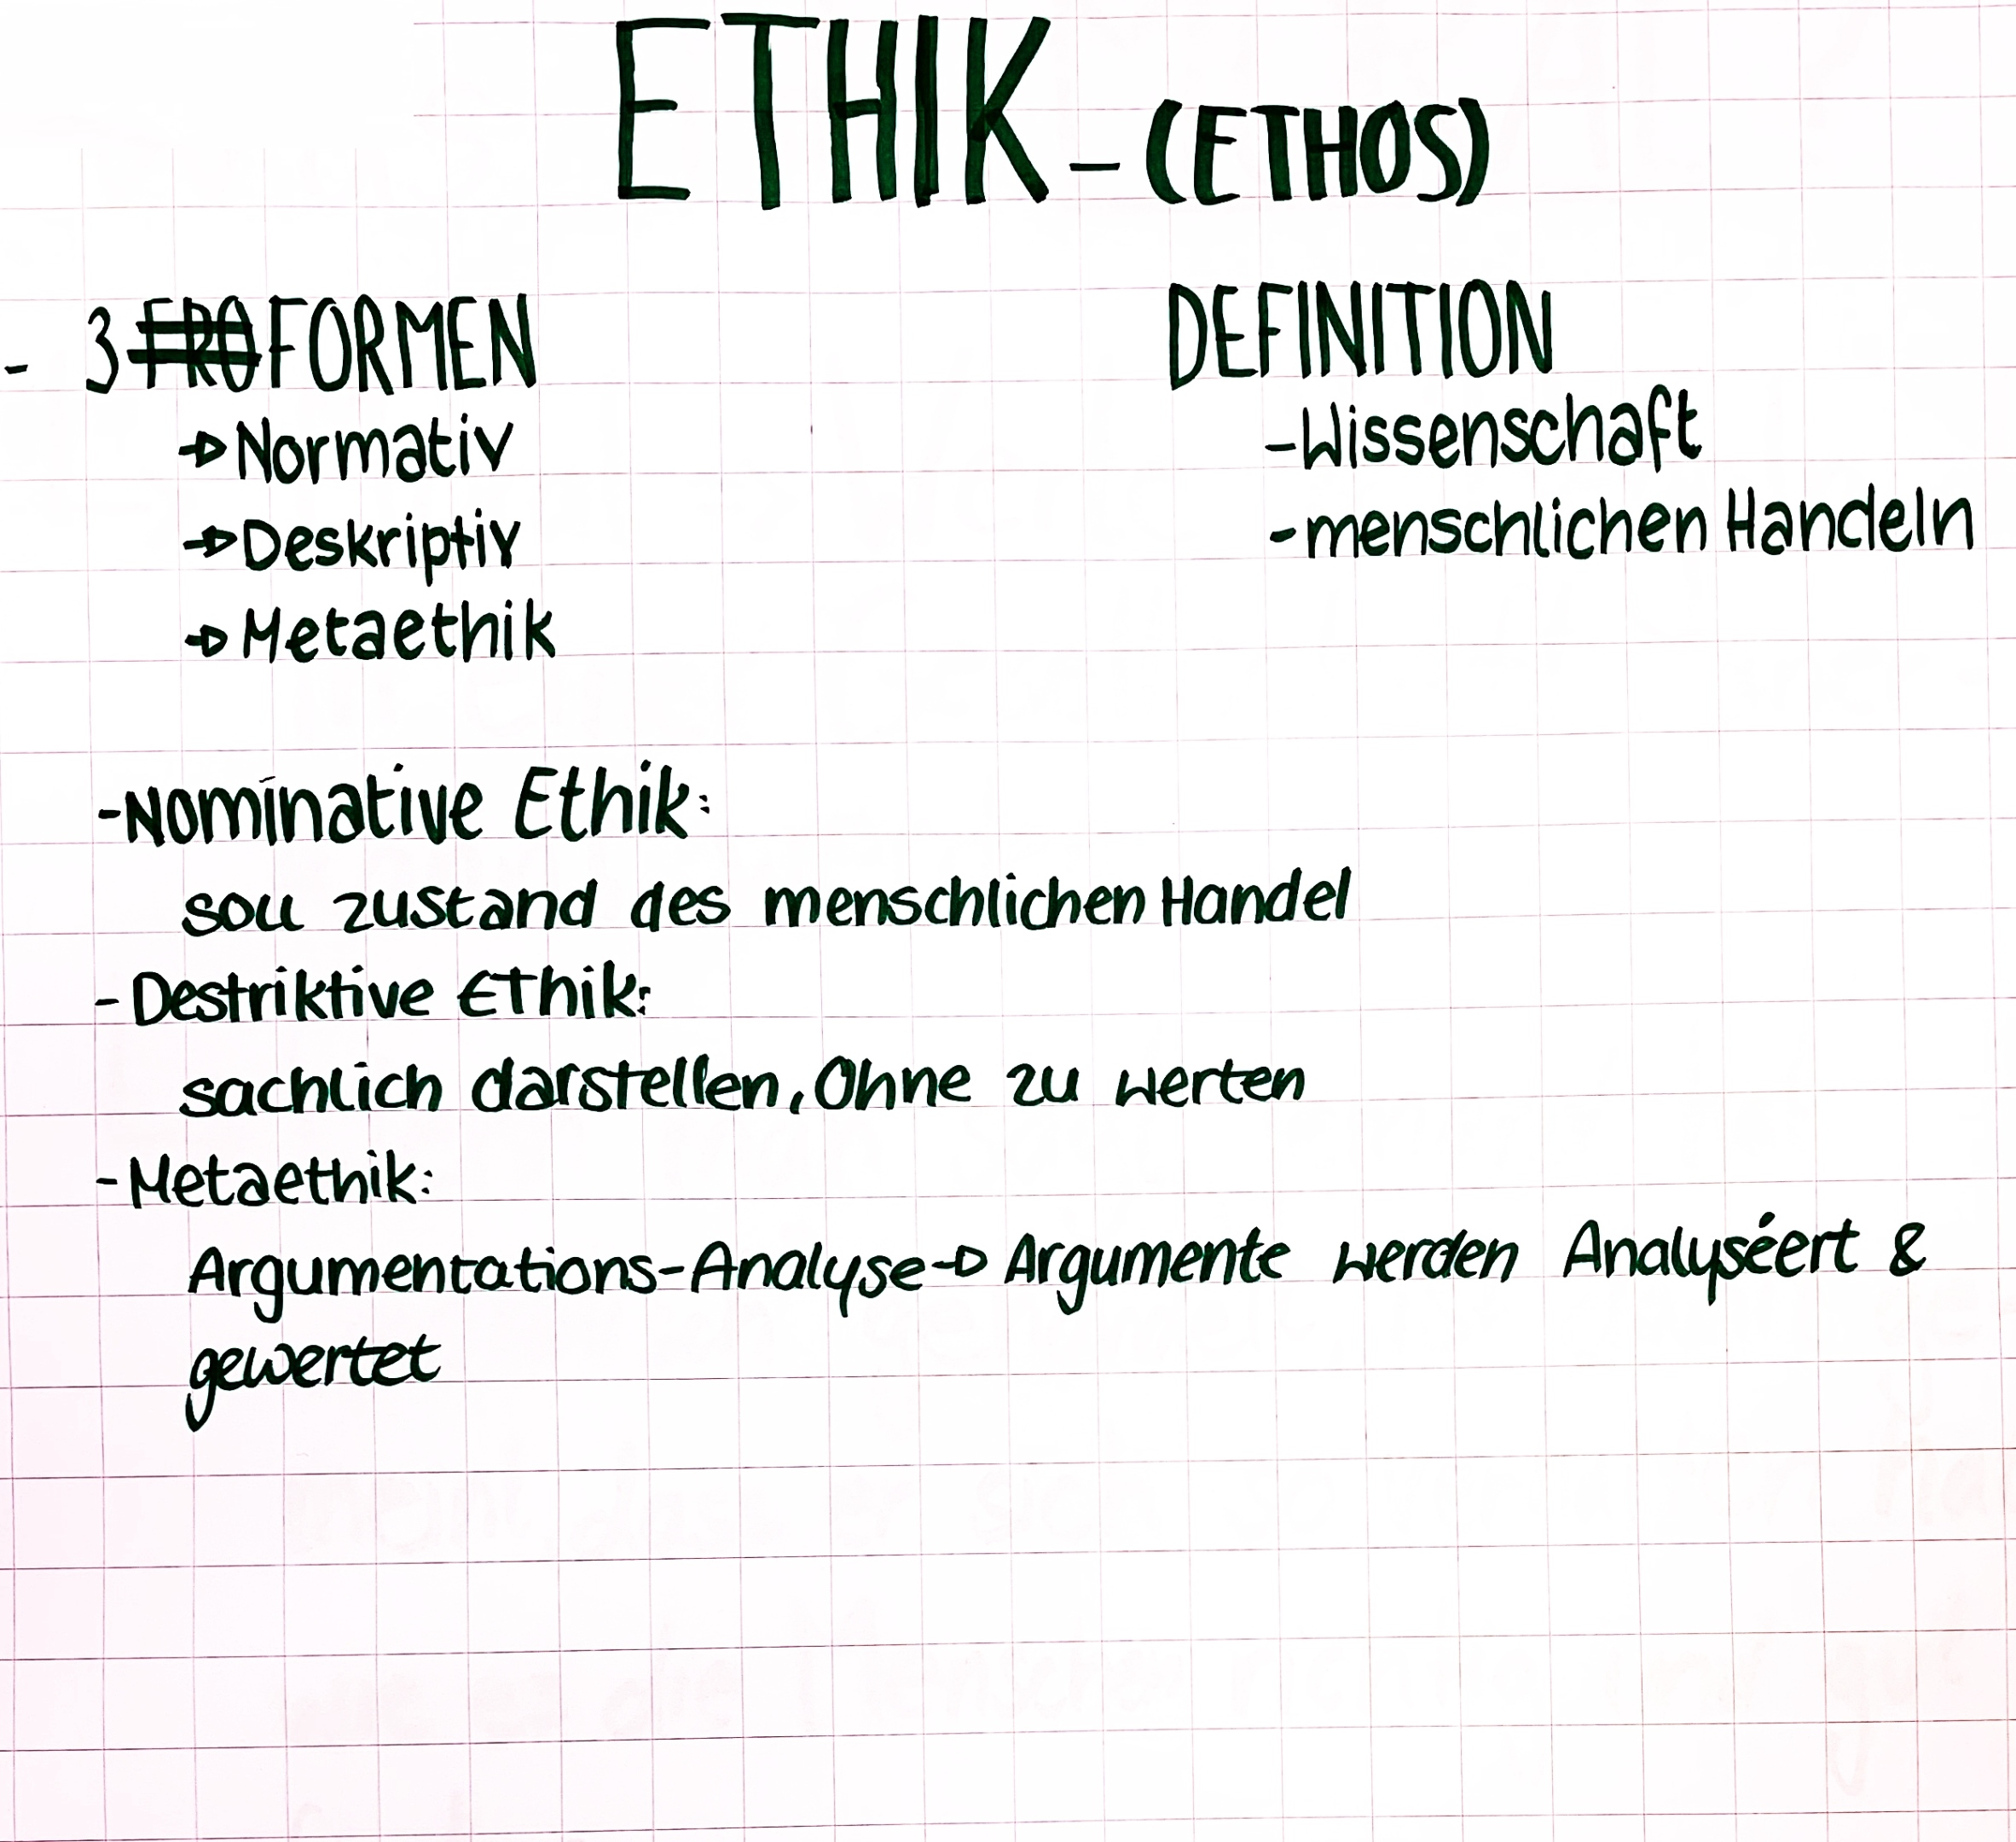 ETHIK - (ETHOS)
- 3 FRO FORMEN
→ Normativ
→ Deskriptiv
→ Metaethik
DEFINITION
- Wissenschaft
- menschlichen Handeln
- Nominative Ethik:
soll zustand des menschlichen Handel
- Destriktive Ethik:
sachlich darstellen, Ohne zu werten
- Metaethik:
Argumentations-Analyse → Argumente werden Analyséert &
gewertet